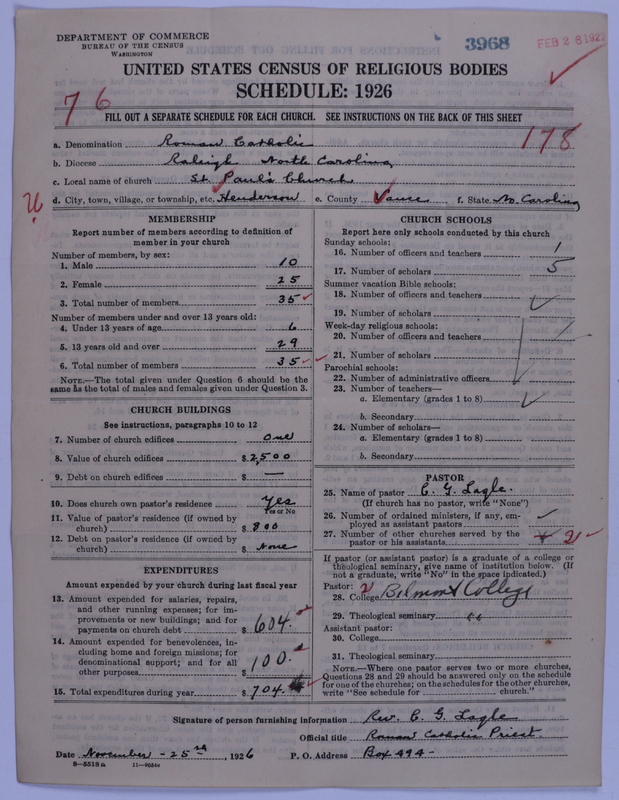 DEPARTMENT OF COMMERCE
BUREAU OF THE CENSUS
WASHINGTON
3968
FEB 28 192
UNITED STATES CENSUS OF RELIGIOUS BODIES
SCHEDULE: 1926
76
FILL OUT A SEPARATE SCHEDULE FOR EACH CHURCH. SEE INSTRUCTIONS ON THE BACK OF THIS SHEET
178
a. Denomination Roman Catholic
b. Diocese Raleigh North Carolina
c. Local name of church St. Paul's Church
d. City, town, village, or township, etc. Henderson e. County Vance f. State No. Carolina
MEMBERSHIP
Report number of members according to definition of
member in your church
Number of members, by sex:
1. Male 10
2. Female 25
3. Total number of members 35
Number of members under and over 13 years old:
4. Under 13 years of age 6
5. 13 years old and over 29
6. Total number of members 35
NOTE.—The total given under Question 6 should be the
same as the total of males and females given under Question 3.
CHURCH BUILDINGS
See instructions, paragraphs 10 to 12
7. Number of church edifices one
8. Value of church edifices $ 2,500
9. Debt on church edifices $ —
10. Does church own pastor's residence Yes
Yes or No
11. Value of pastor's residence (if owned by
church) $ 800
12. Debt on pastor's residence (if owned by
church) $ None
EXPENDITURES
Amount expended by your church during last fiscal year
13. Amount expended for salaries, repairs,
and other running expenses; for im-
provements or new buildings; and for
payments on church debt $ 604.
14. Amount expended for benevolences, in-
cluding home and foreign missions; for
denominational support; and for all
other purposes $ 100.
15. Total expenditures during year $ 704.
CHURCH SCHOOLS
Report here only schools conducted by this church
Sunday schools:
16. Number of officers and teachers 1
17. Number of scholars 5
Summer vacation Bible schools:
18. Number of officers and teachers
19. Number of scholars
Week-day religious schools:
20. Number of officers and teachers
21. Number of scholars
Parochial schools:
22. Number of administrative officers
23. Number of teachers—
a. Elementary (grades 1 to 8)
b. Secondary
24. Number of scholars—
a. Elementary (grades 1 to 8)
b. Secondary
PASTOR
25. Name of pastor C. G. Lagle.
(If church has no pastor, write "None")
26. Number of ordained ministers, if any, em-
ployed as assistant pastors
27. Number of other churches served by the
pastor or his assistants 2
If pastor (or assistant pastor) is a graduate of a college or
theological seminary, give name of institution below. (If
not a graduate, write "No" in the space indicated.)
Pastor: 2
28. College Belmont College
29. Theological seminary "
Assistant pastor:
30. College
31. Theological seminary
NOTE.—Where one pastor serves two or more churches,
Questions 28 and 29 should be answered only on the schedule
for one of the churches; on the schedules for the other churches,
write "See schedule for church."
Signature of person furnishing information Rev. C. G. Lagle
Official title Roman Catholic Priest.
Date November - 25th, 1926 P. O. Address Box 494 -
8—5518a 11—9054